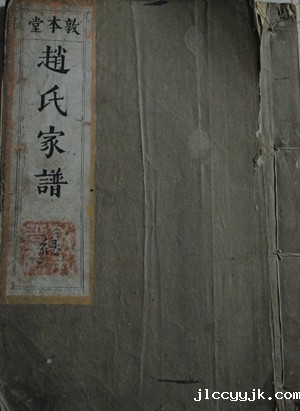 敦本堂
趙氏家譜
總
jlccyyjk.com